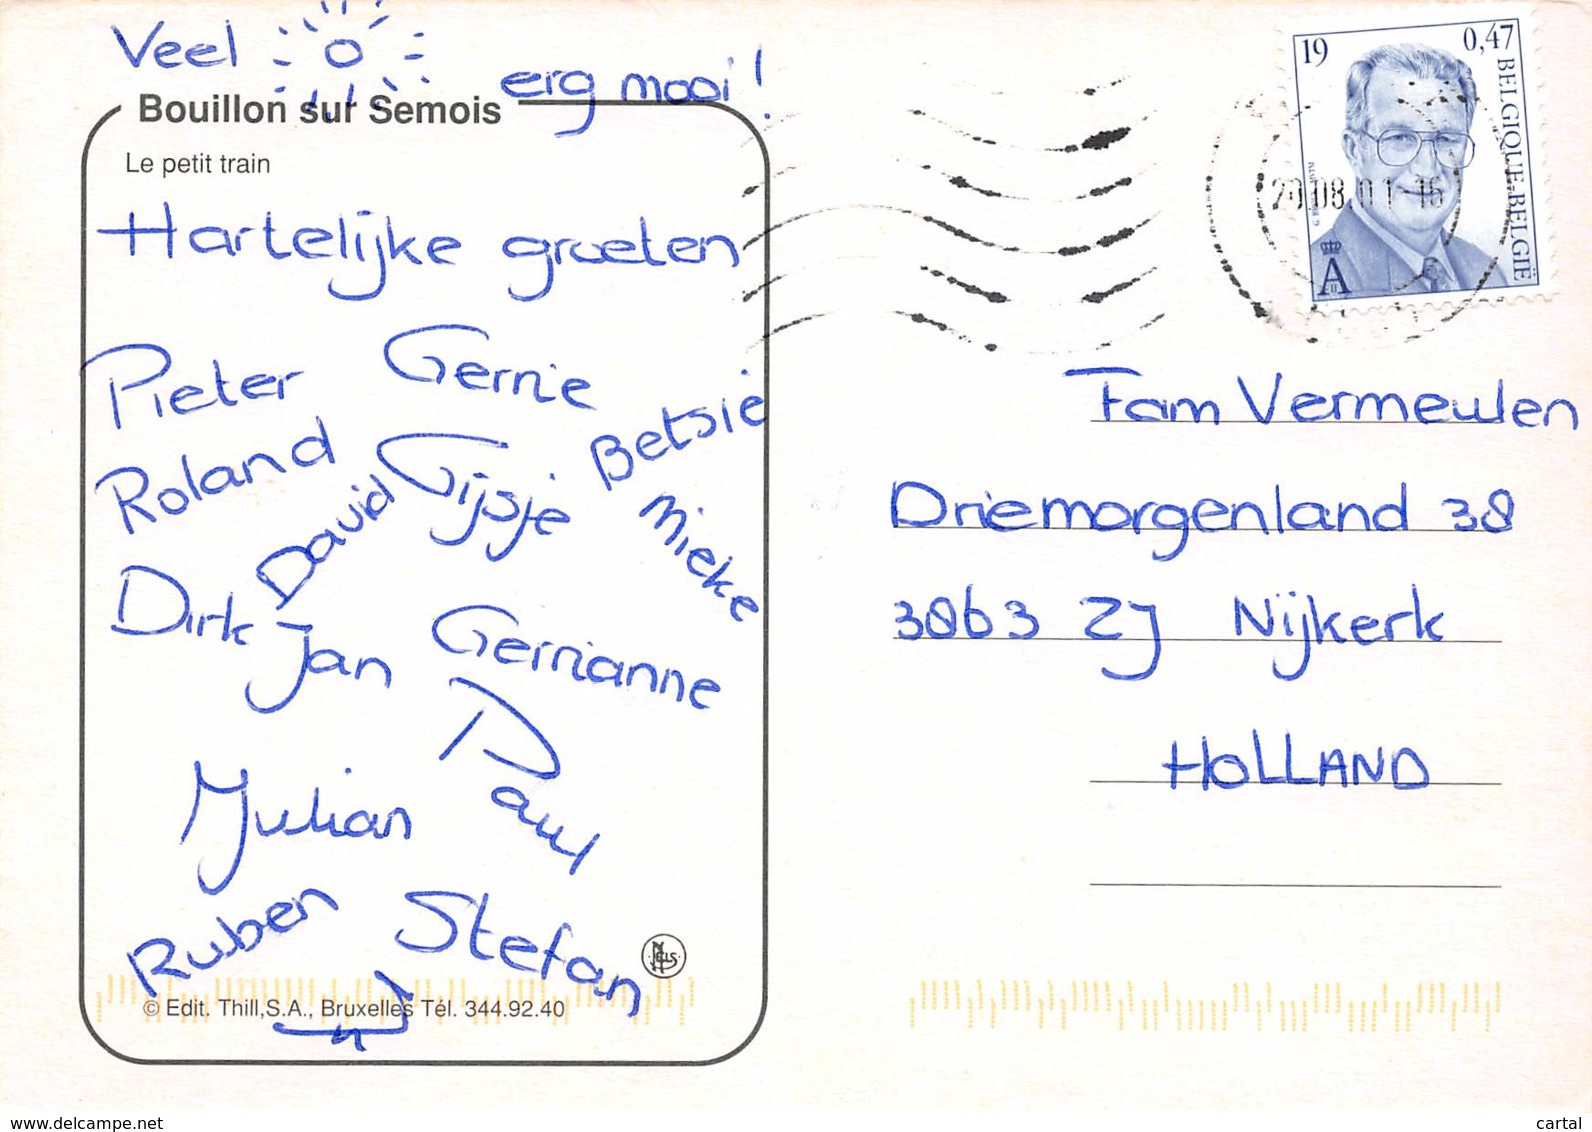 Veel
erg mooi!
Bouillon sur Semois
Le petit train
Hartelijke groeten
Pieter Gerrie
Roland Gijsje Betsie
David Mieke
Dirk Jan Gerrianne
Paul
Julian
Ruben Stefan
© Edit. Thill,S.A., Bruxelles Tél. 344.92.40
NELS
19 0,47
BELGIQUE-BELGIË
A
II
08.01-16
Fam Vermeulen
Driemorgenland 38
3863 ZJ Nijkerk
HOLLAND
www.delcampe.net
cartal